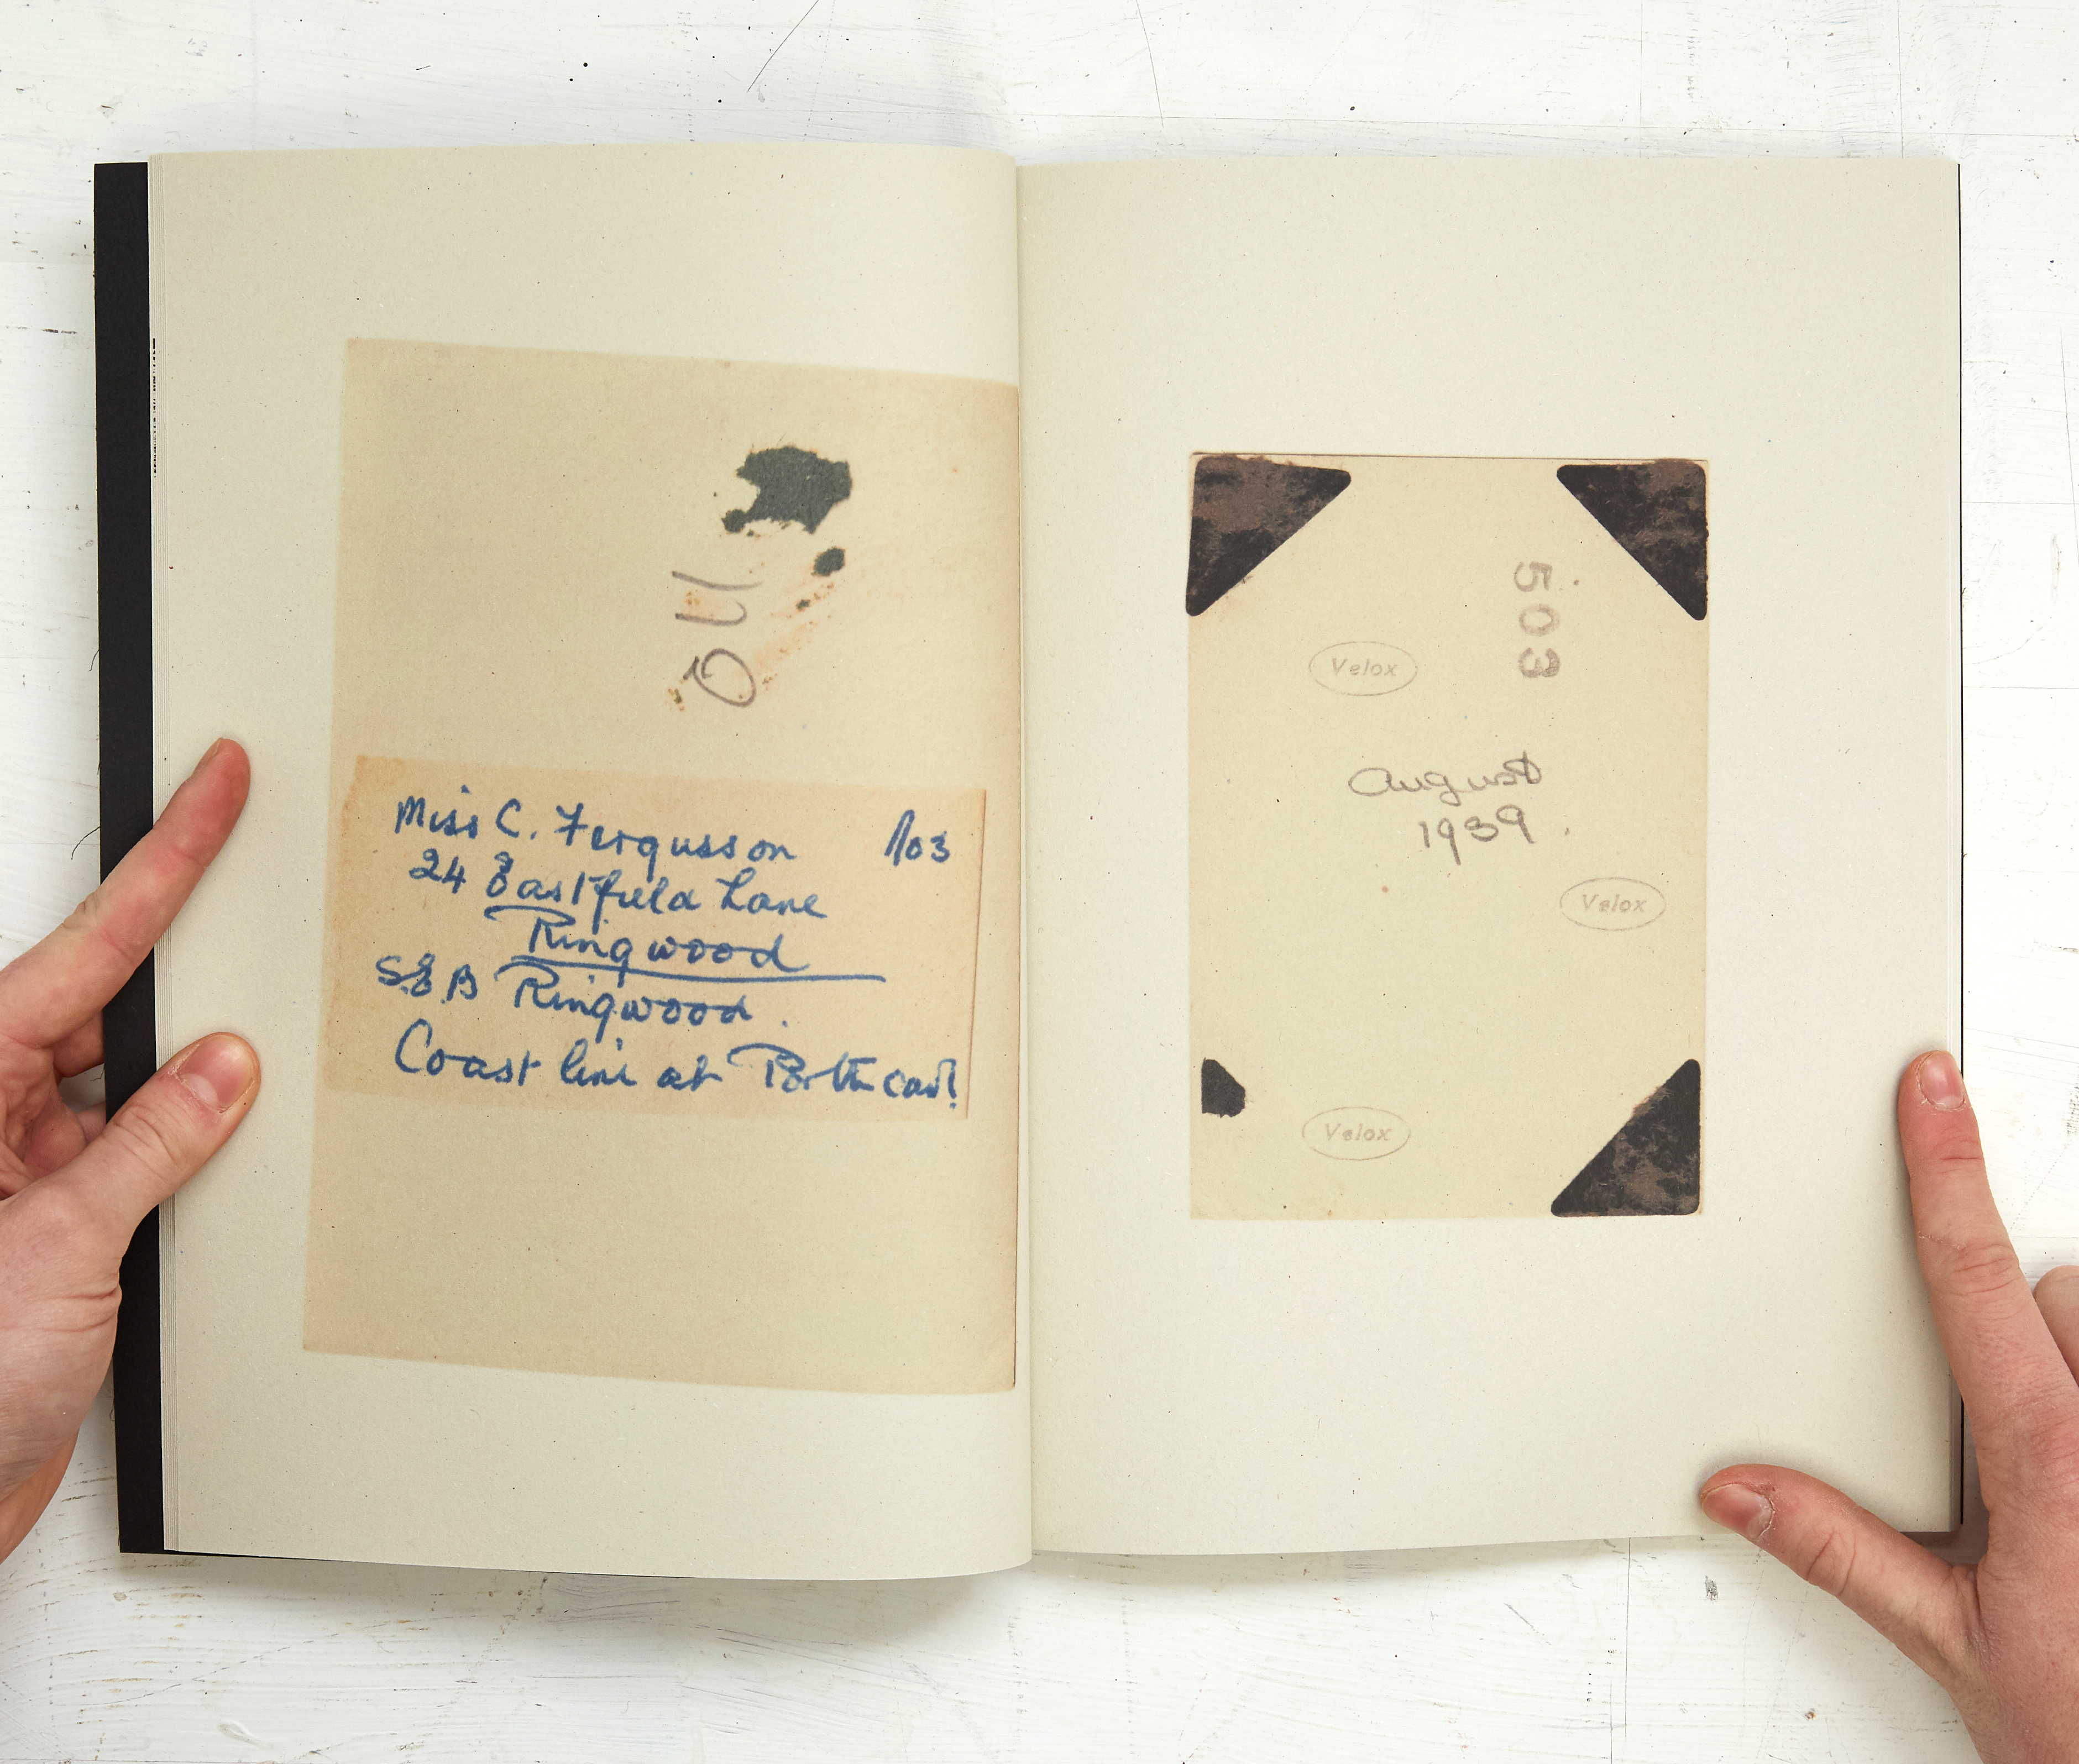 Miss C. Fergusson
24 Eastfield Lane
Ringwood
S.E.B Ringwood.
Coast line at
503
Velox
August
1939.
Velox
Velox